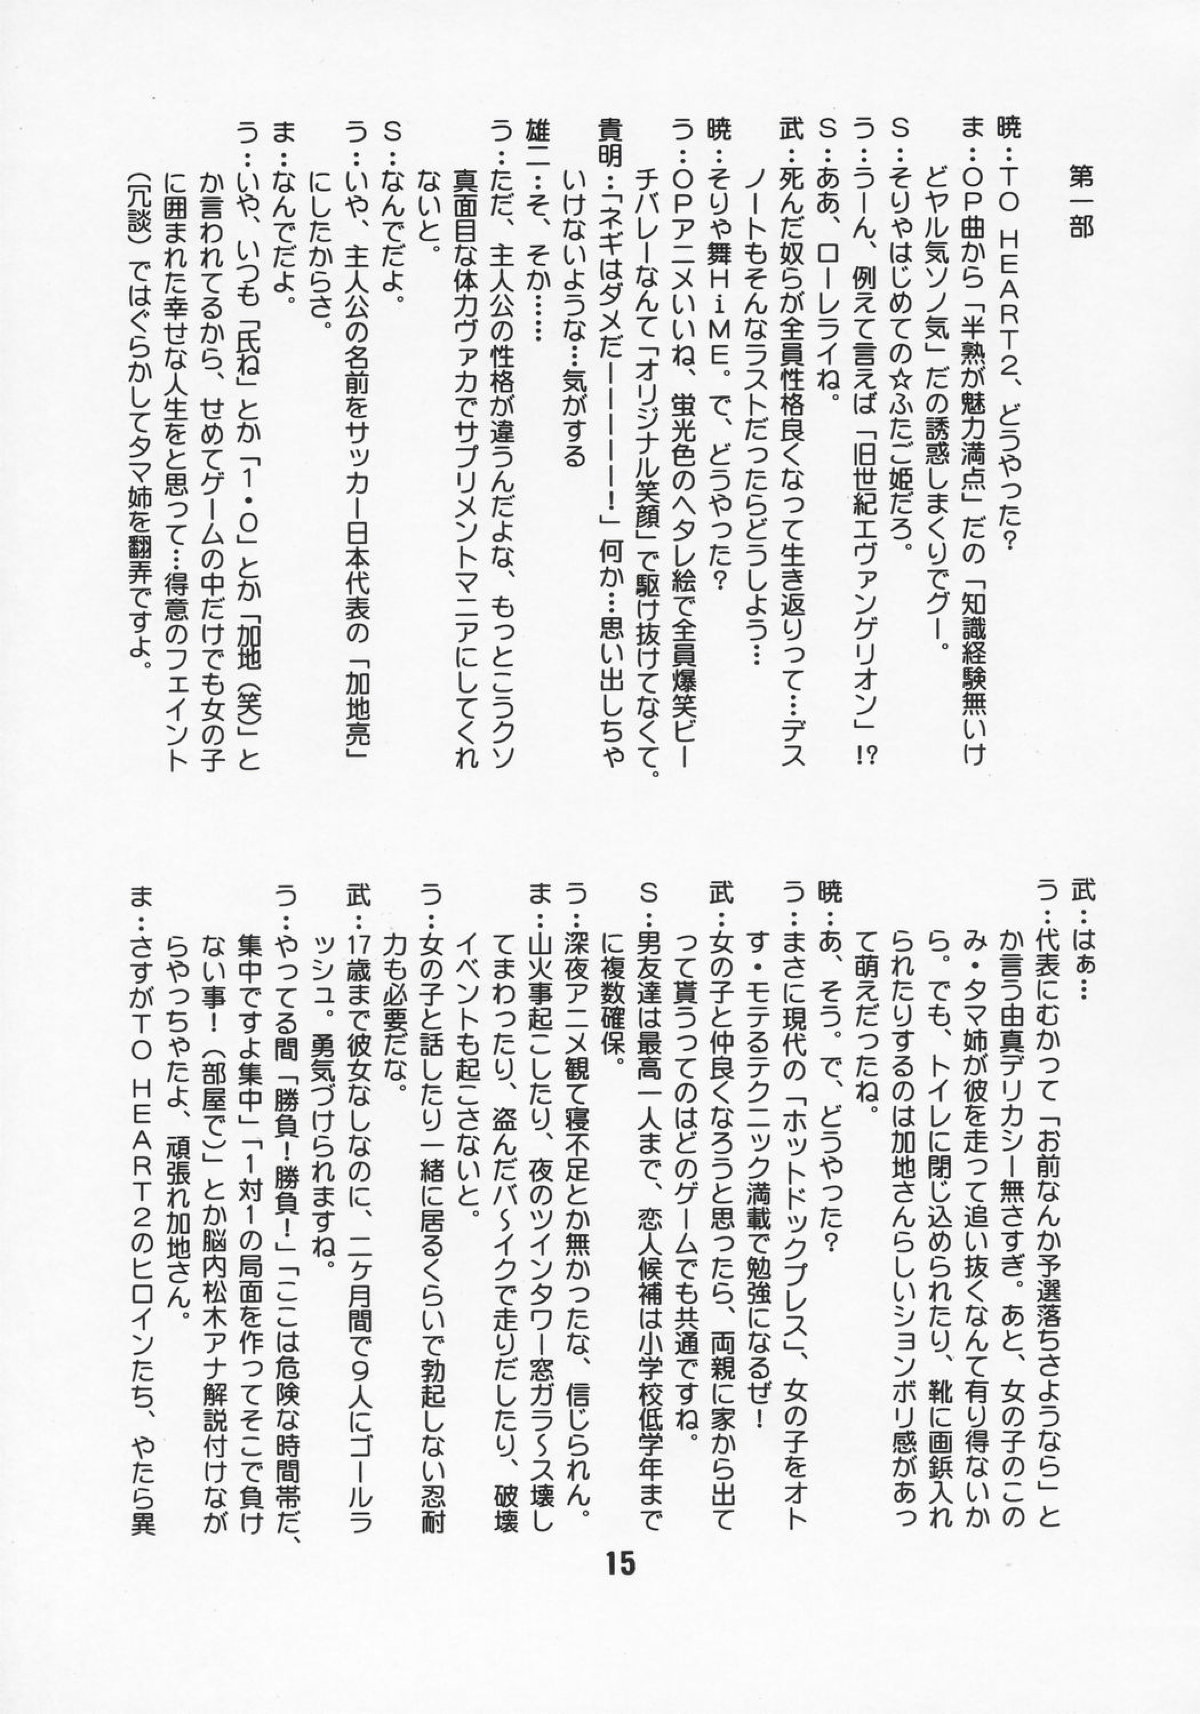 第一部
暁：TO HEART2、どうやった？
ま：OP曲から「半熟が魅力満点」だの「知識経験無いけ
どヤル気ソノ気」だの誘惑しまくりでグー。
S：そりゃはじめての☆ふたご姫だろ。
う：うーん、例えて言えば「旧世紀エヴァンゲリオン」!?
S：ああ、ローレライね。
武：死んだ奴らが全員性格良くなって生き返りって…デス
ノートもそんなラストだったらどうしよう…
暁：そりゃ舞HiME。で、どうやった？
う：OPアニメいいね、蛍光色のヘタレ絵で全員爆笑ビー
チバレーなんて「オリジナル笑顔」で駆け抜けてなくて。
貴明：「ネギはダメだーーーーー！」何か…思い出しちゃ
いけないような…気がする
雄二：そ、そか……
う：ただ、主人公の性格が違うんだよな、もっとこうクソ
真面目な体力ヴァカでサプリメントマニアにしてくれ
ないと。
S：なんでだよ。
う：いや、主人公の名前をサッカー日本代表の「加地亮」
にしたからさ。
ま：なんでだよ。
う：いや、いつも「氏ね」とか「1・0」とか「加地（笑）」と
か言われてるから、せめてゲームの中だけでも女の子
に囲まれた幸せな人生をと思って…得意のフェイント
（冗談）ではぐらかしてタマ姉を翻弄ですよ。
武：はぁ…
う：代表にむかって「お前なんか予選落ちさようなら」と
か言う由真デリカシー無さすぎ。あと、女の子のこの
み・タマ姉が彼を走って追い抜くなんて有り得ないか
ら。でも、トイレに閉じ込められたり、靴に画鋲入れ
られたりするのは加地さんらしいションボリ感があっ
て萌えだったね。
暁：あ、そう。で、どうやった？
う：まさに現代の「ホットドックプレス」、女の子をオト
す・モテるテクニック満載で勉強になるぜ！
武：女の子と仲良くなろうと思ったら、両親に家から出て
って貰うってのはどのゲームでも共通ですね。
S：男友達は最高一人まで、恋人候補は小学校低学年まで
に複数確保。
う：深夜アニメ観て寝不足とか無かったな、信じられん。
ま：山火事起こしたり、夜のツインタワー窓ガラ～ス壊し
てまわったり、盗んだバ～イクで走りだしたり、破壊
イベントも起こさないと。
う：女の子と話したり一緒に居るくらいで勃起しない忍耐
力も必要だな。
武：17歳まで彼女なしなのに、二ヶ月間で9人にゴールラ
ッシュ。勇気づけられますね。
う：やってる間「勝負！勝負！」「ここは危険な時間帯だ、
集中ですよ集中」「1対1の局面を作ってそこで負け
ない事！（部屋で）」とか脳内松木アナ解説付けなが
らやっちゃたよ、頑張れ加地さん。
ま：さすがTO HEART2のヒロインたち、やたら異
15